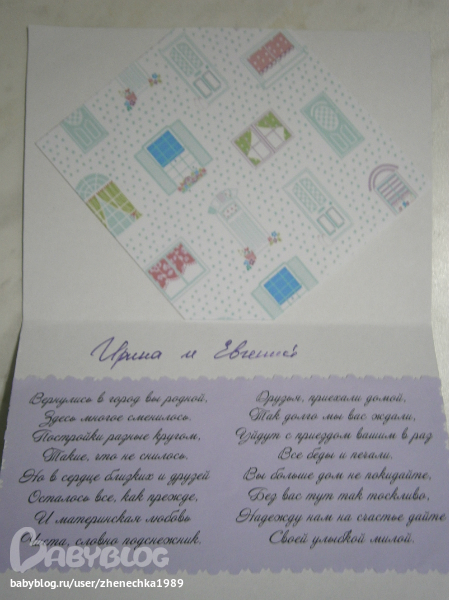 Ирина и Евгений
Вернулись в город вы родной,
Здесь многое сменилось.
Постройки разные кругом,
Такие, что не снилось.
Но в сердце близких и друзей
Осталось все, как прежде,
И материнская любовь
Чиста, словно подснежник.
Друзья, приехали домой,
Так долго мы вас ждали,
Уйдут с приездом вашим в раз
Все беды и печали.
Вы больше дом не покидайте,
Без вас тут так тоскливо,
Надежду нам на счастье дайте
Своей улыбкой милой.
BABYBLOG
babyblog.ru/user/zhenechka1989